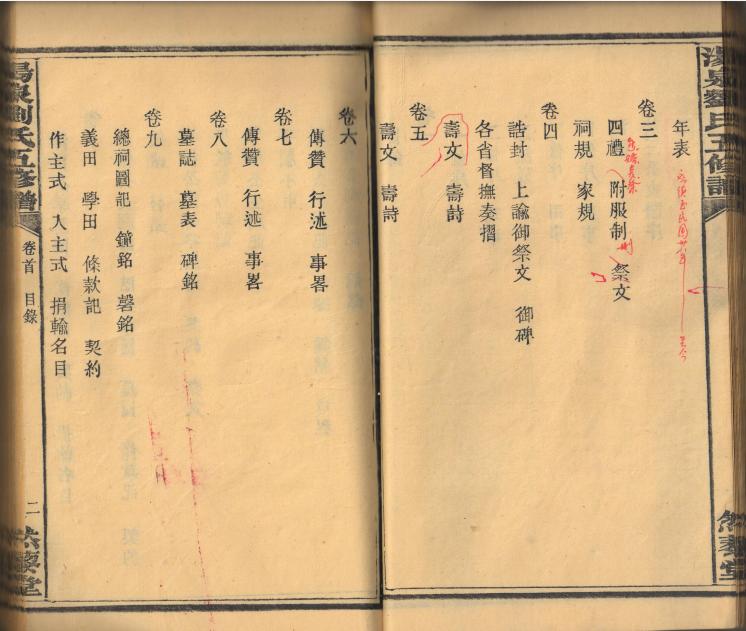 湯泉劉氏五修譜
然藜堂
年表
卷三
四禮 附服制 祭文
祠規 家規
卷四
誥封 上諭御祭文 御碑
各省督撫奏摺
壽文 壽詩
卷五
壽文 壽詩
卷六
傳贊 行述 事畧
卷七
傳贊 行述 事畧
卷八
墓誌 墓表 碑銘
卷九
總祠圖記 鐘銘 磬銘
義田 學田 條款記 契約
作主式 入主式 捐輸名目
湯泉劉氏五修譜
卷首 目錄
二
然藜堂